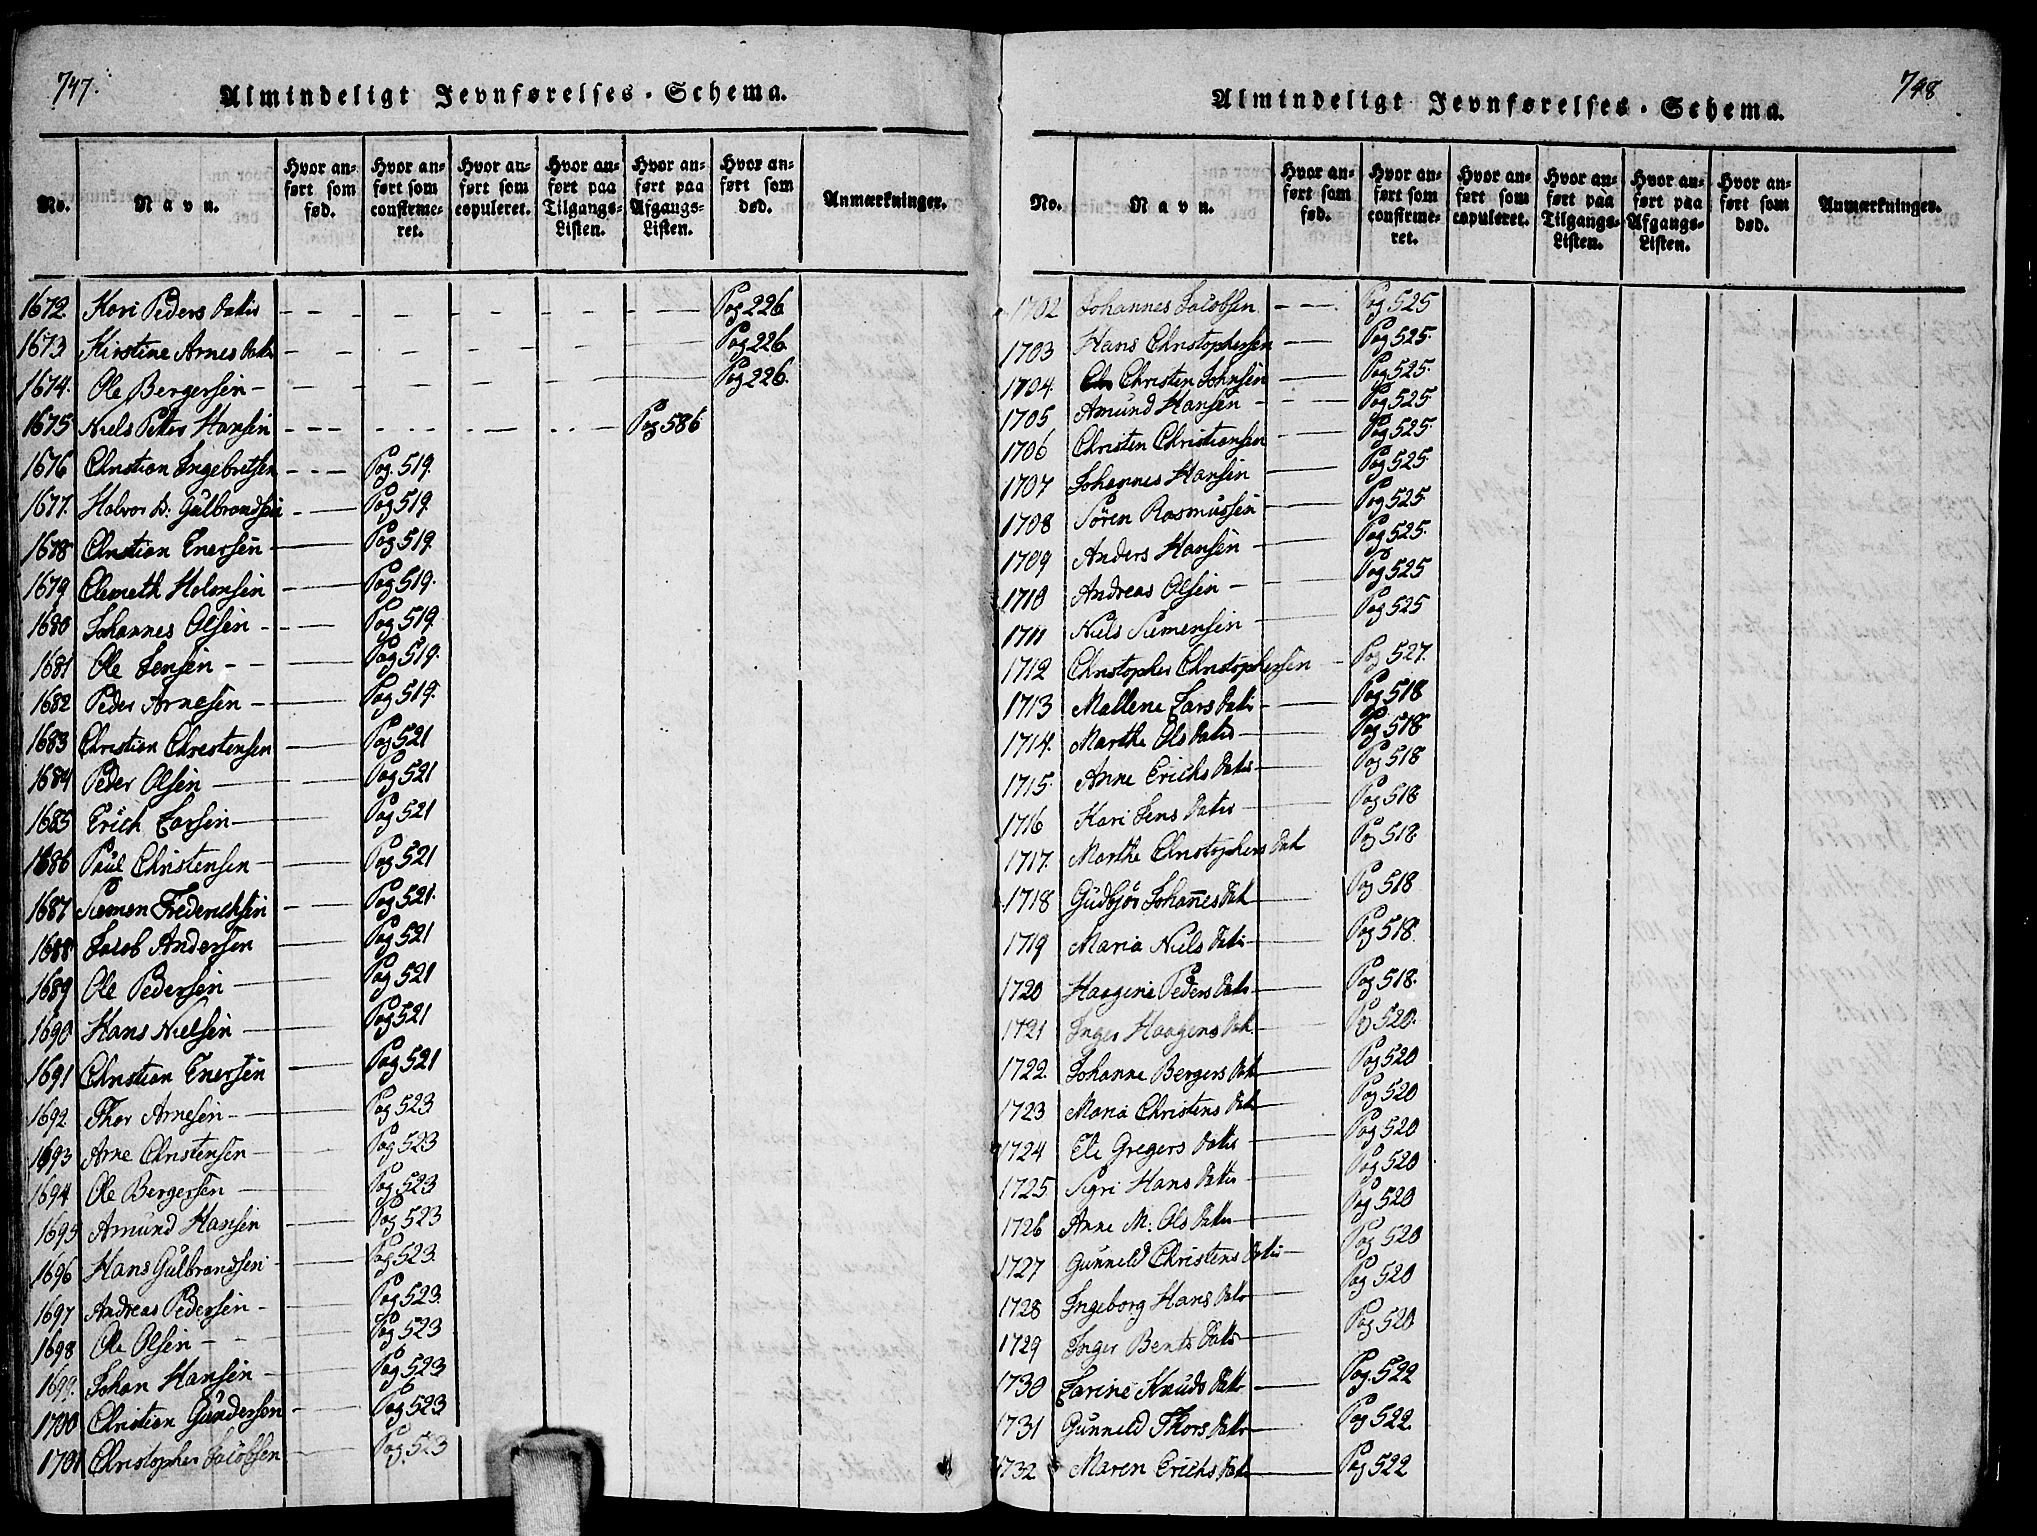 747.
Almindeligt Jevnførelses-Schema.
No.
Navn.
Hvor anført som fød.
Hvor anført som confirmeret.
Hvor anført som copuleret.
Hvor anført paa Tilgangs-Listen.
Hvor anført paa Afgangs-Listen.
Hvor anført som død.
Anmærkninger.
1672 Kari Peders Datter Pag 226
1673 Kirstine Arnes Datter Pag 226
1674. Ole Bergersen Pag 226.
1675 Niels Petter Hansen Pag 586
1676 Christian Ingebretsen Pag 519.
1677. Halvor D: Gulbrandsen Pag 519.
1678 Christian Enersen Pag 519.
1679 Clemeth Holmsen Pag 519.
1680 Johannes Olsen Pag 519.
1681 Ole Jensen Pag 519.
1682 Peder Arnesen Pag 519.
1683 Christian Christensen Pag 521
1684 Peder Olsen Pag 521
1685 Erich Larsen Pag 521
1686 Paul Christensen Pag 521
1687 Siemen Frederichsen Pag 521.
1688 Jacob Andersen Pag 521
1689 Ole Pedersen Pag 521
1690 Hans Nielsen Pag 521
1691 Christian Enersen Pag 521
1692 Thor Arnesen Pag 523
1693 Arne Christensen Pag 523
1694 Ole Bergersen Pag 523
1695 Amund Hansen Pag 523
1696 Hans Gulbrandsen Pag 523.
1697 Andreas Pedersen Pag 523.
1698 Ole Olsen Pag 523
1699. Johan Hansen Pag 523
1700 Christian Gundersen Pag 523
1701 Christopher Jacobsen Pag 523
748
Almindeligt Jevnførelses-Schema.
No.
Navn.
Hvor anført som fød.
Hvor anført som confirmeret.
Hvor anført som copuleret.
Hvor anført paa Tilgangs-Listen.
Hvor anført paa Afgangs-Listen.
Hvor anført som død.
Anmærkninger.
1702 Johannes Jacobsen Pag 525
1703 Hans Christophersen Pag 525.
1704. Christen Johnsen Pag 525.
1705 Amund Hansen Pag 525
1706 Christen Christiansen Pag 525.
1707 Johannes Hansen Pag 525.
1708 Søren Rasmussen Pag 525
1709 Anders Hansen Pag 525.
1710 Andreas Olsen Pag 525
1711 Niels Siemensen Pag 525
1712 Christopher Christophersen Pag 527.
1713 Mallene Lars Datter Pag 518
1714. Marthe Ols Datter Pag 518
1715. Anne Erichs Datter Pag 518
1716 Kari Jens Datter Pag 518
1717. Marthe Christophers Datt Pag 518.
1718 Gudbjør Johannes Datt Pag 518
1719 Maria Niels Datter Pag 518.
1720 Haagine Peders Datter Pag 518.
1721 Inger Haagens Datt Pag 520.
1722. Johanne Bergers Datt Pag 520
1723 Maria Christens Datt Pag 520
1724 Eli Gregers Datter Pag 520
1725. Sigri Hans Datter Pag 520
1726 Anne M. Ols Datter Pag 520
1727 Gunneld Christens Datter Pag 520
1728 Ingeborg Hans Datter Pag 520
1729 Inger Bents Datter Pag 520
1730 Larine Knuds Datter Pag 522
1731 Gunneld Thors Datter Pag 522.
1732 Maren Erichs Datter Pag 522